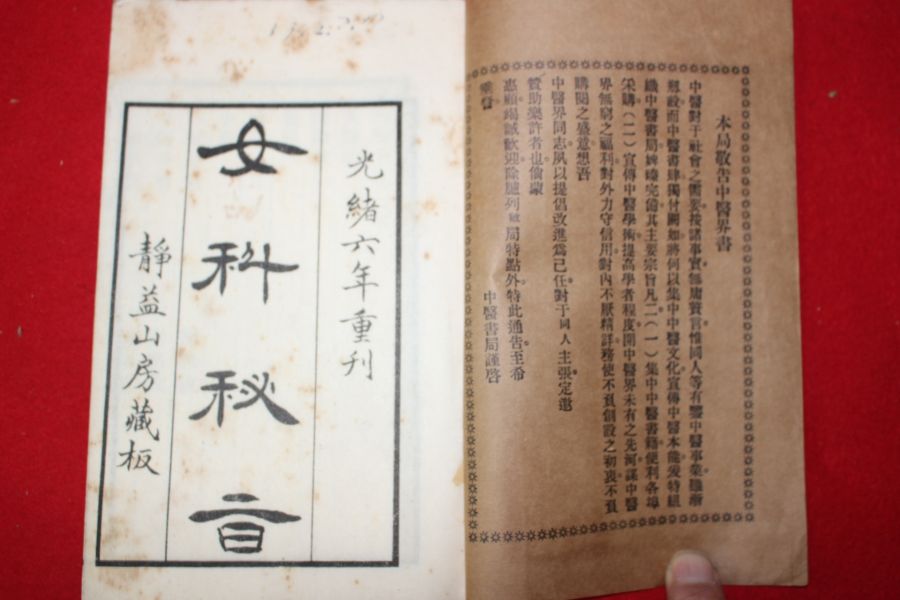 本局敬告中醫界書
中醫對于社會之需要按諸事實無庸贅言惟同人等有鑒中醫事業雖漸
懋政而中醫書肆獨付闕如將何以集中中醫文化宣傳中醫本能爰特組
織中醫書局婢臻完備其主要宗旨凡二(一)集中中醫書籍便利各埠
采購(二)宣傳中醫學術提高學者程度開中醫界未有之先河謀中醫
界無窮之福利對外力守信用對內不厭精詳務使不負創設之初衷不負
購閱之盛意想吾
中醫界同志夙以提倡改進爲己任對于同人主張定邀
贊助樂許者也倘蒙
惠顧竭誠歡迎除臚列敝局特點外特此通告至希
垂詧
中醫書局謹啓
光緒六年重刊
女科秘旨
靜益山房藏板